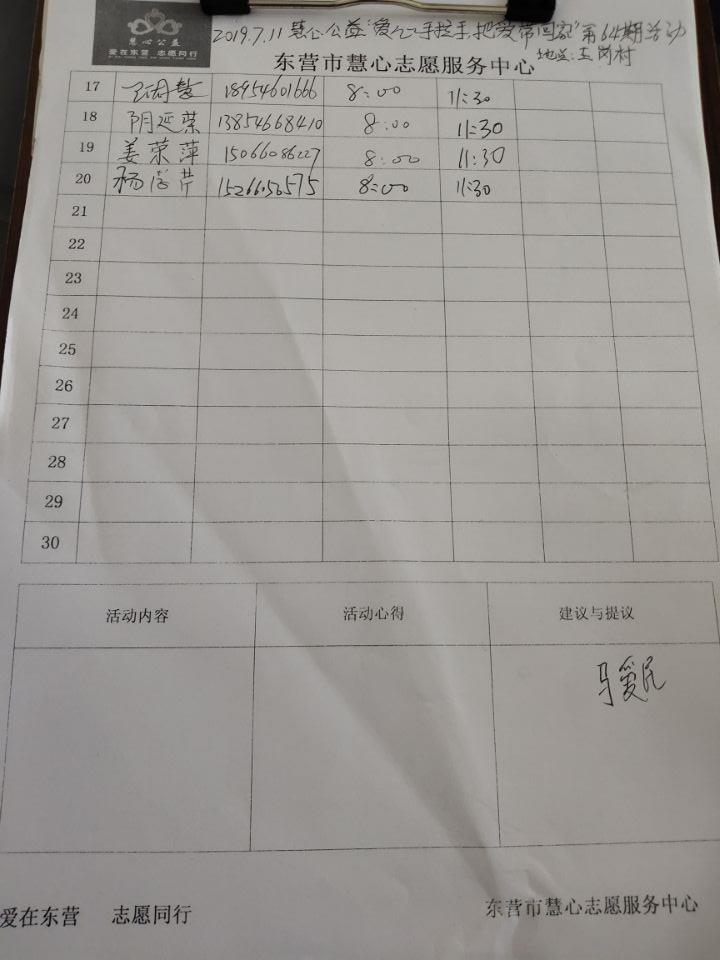 慧心公益
爱在东营 志愿同行
2019.7.11 慧心公益"爱心手拉手,把爱带回家"第64期活动
东营市慧心志愿服务中心
17 18954601666 8:00 11:30
18 阴延荣 13854668410 8:00 11:30
19 姜荣萍 15066086227 8:00 11:30
20 杨学芹 15266056575 8:00 11:30
21
22
23
24
25
26
27
28
29
30
活动内容 活动心得 建议与提议
马爱民
爱在东营 志愿同行 东营市慧心志愿服务中心